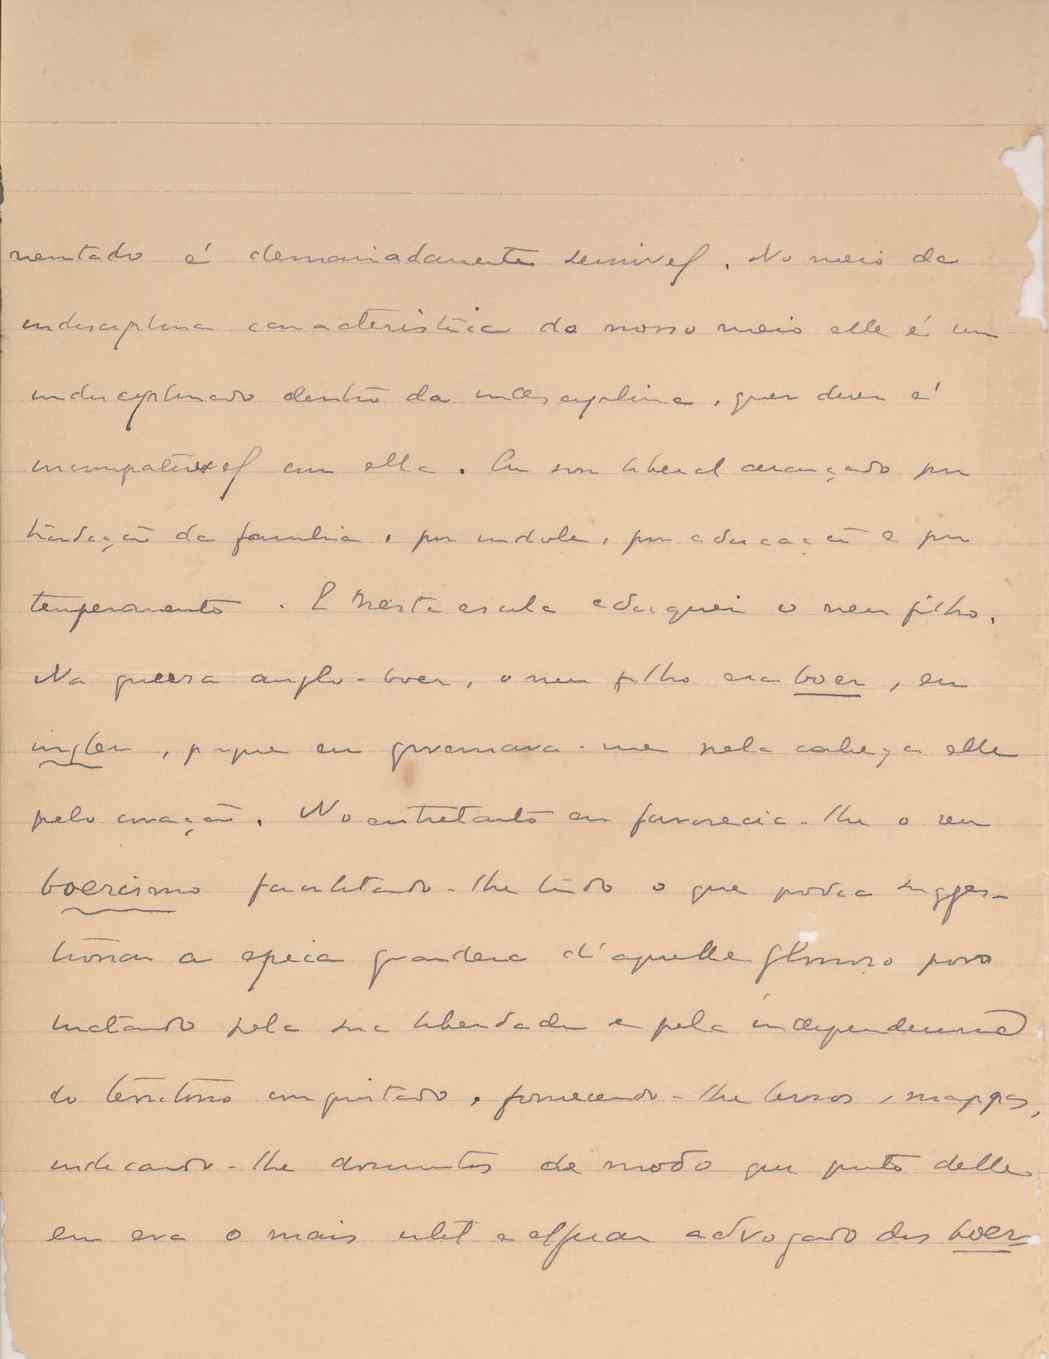 mentado é demaziadamente sensivel. No meio da
indisciplina caracteristica do nosso meio elle é um
indisciplinado dentro da indisciplina, quer dizer é
incompativel com ella. Eu sou liberal avançado por
tradição da familia, por indole, por educação e por
temperamento. E n'esta escola eduquei o meu filho.
Na guerra anglo-boer, o meu filho era boer, eu
inglez, porque eu governava-me pela cabeça elle
pelo coração. No entretanto eu favorecia-lhe o seu
boerismo facilitando-lhe tudo o que podia sugges-
tionar a epica grandeza d'aquelle glorioso povo
luctando pela sua liberdade e pela independencia
do territorio conquistado, fornecendo-lhe livros, mappas,
indicando-lhe documentos de modo que junto delle
eu era o mais util e efficaz advogado dos boers